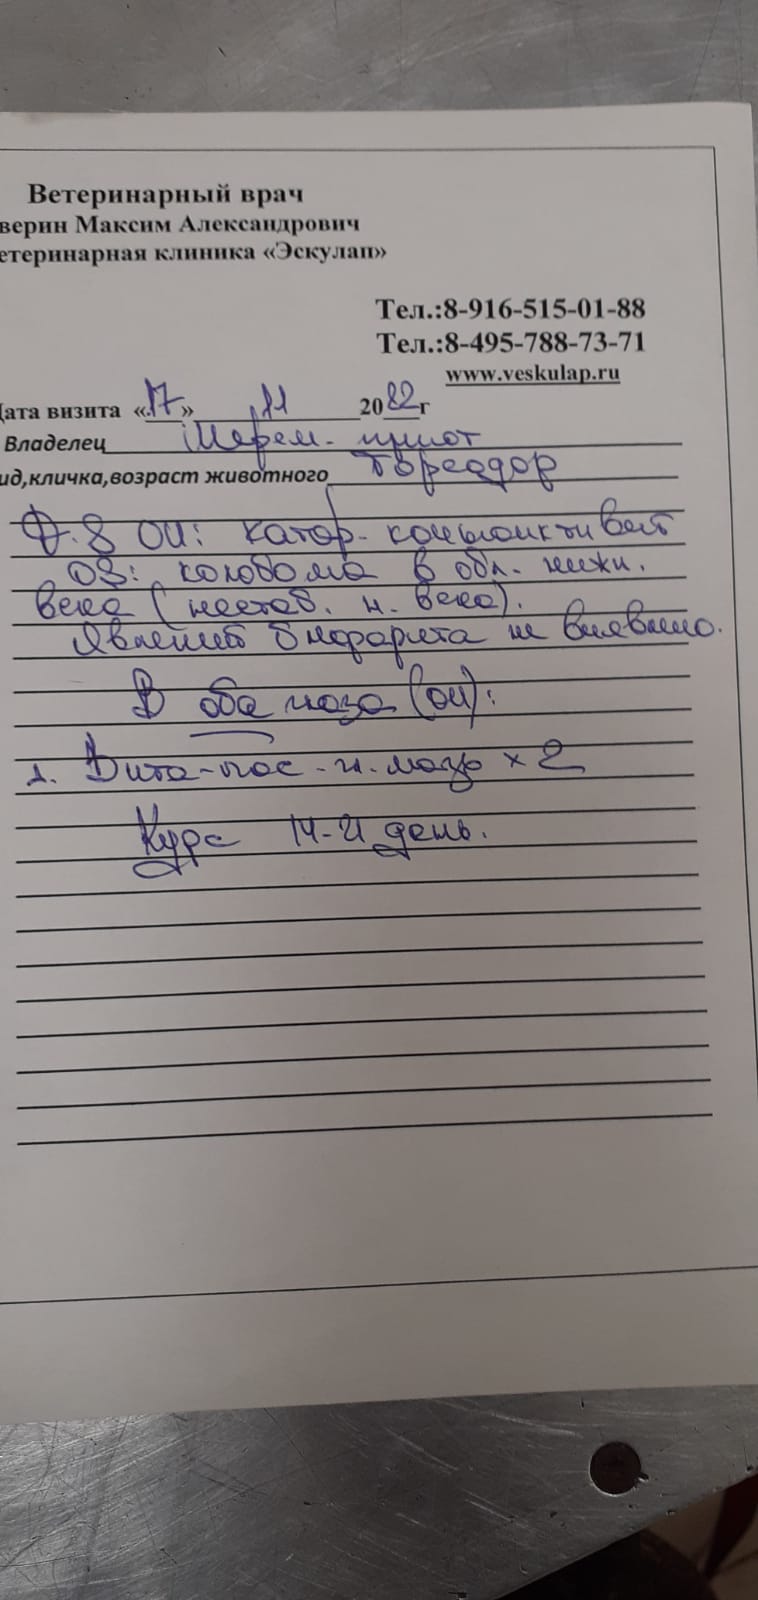 Ветеринарный врач
верин Максим Александрович
етеринарная клиника «Эскулап»
Тел.:8-916-515-01-88
Тел.:8-495-788-73-71
www.veskulap.ru
Дата визита «17» 11 2022г
Владелец Шерем. приют
ид,кличка,возраст животного Тореадор
D.S OU: катар. конъюнктивит
OS: колобома в обл. нижн.
века (нестаб. н. века).
Явлений блефарита не выявлено.
В оба глаза (OU):
1. Вита-пос-гл. мазь × 2
Курс 14-21 день.